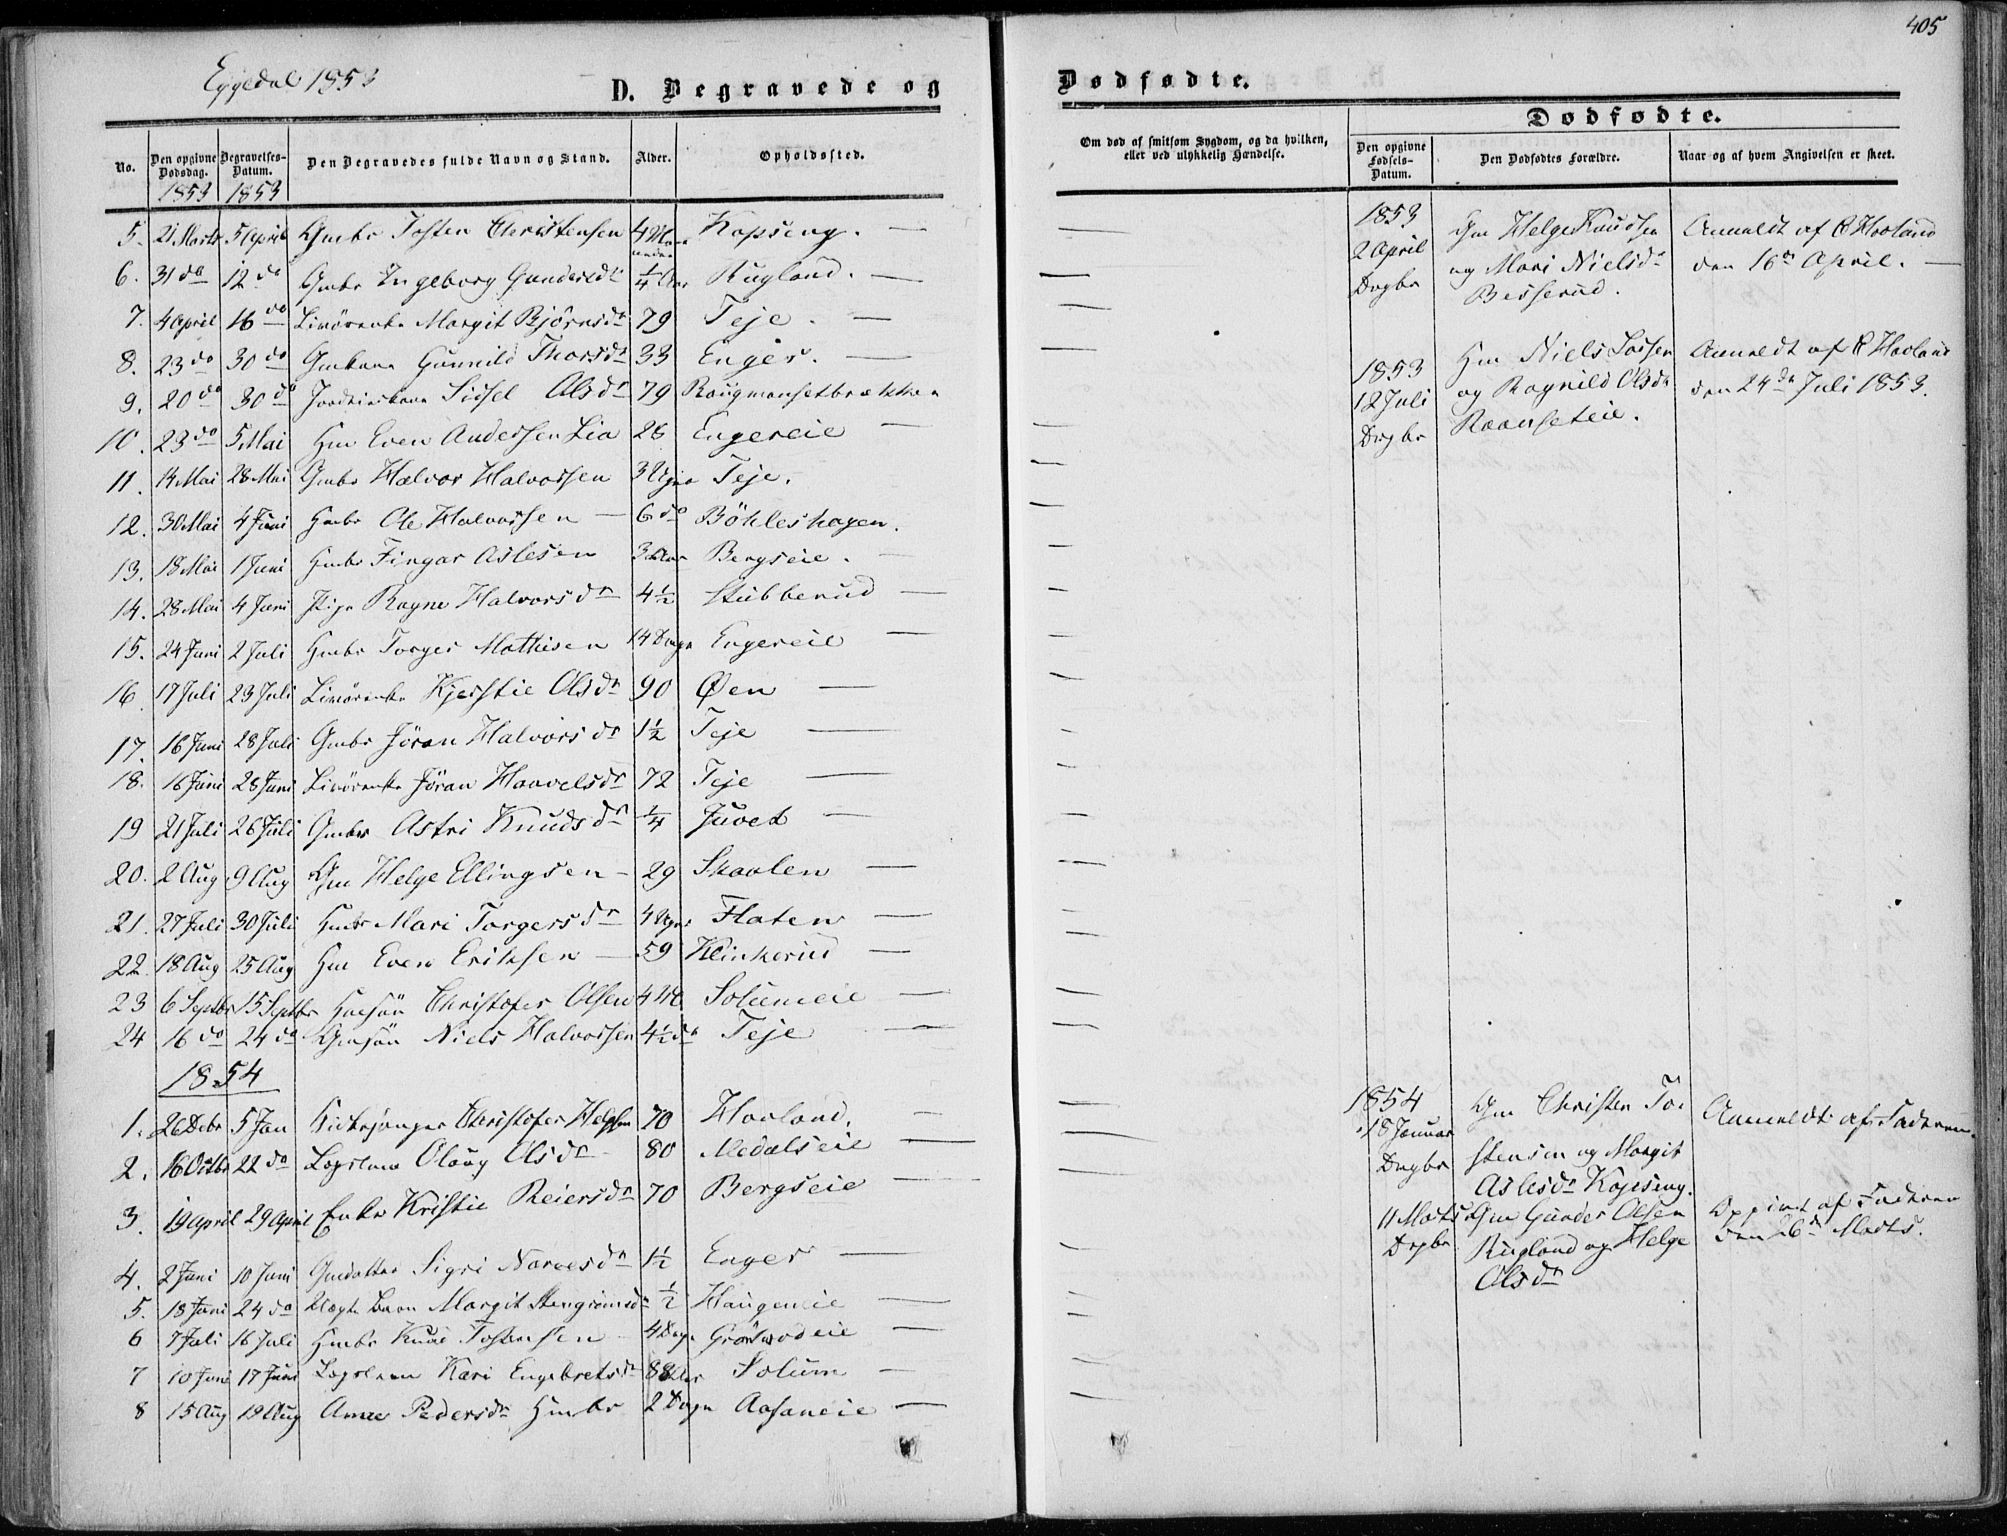 405
Eggedal 1853
D. Begravede og
Dødfødte.
Dødfødte.
No.
Den opgivne Dødsdag.
1853
Begravelses-Datum.
1853
Den Begravedes fulde Navn og Stand.
Alder.
Opholdssted.
Om død af smitsom Sygdom, og da hvilken, eller ved ulykkelig Hændelse.
Den opgivne Fødsels-Datum.
Den Dødfødtes Forældre.
Naar og af hvem Angivelsen er skeet.
5. 21 Marts 5 April Gmbr Tosten Christensen 4 Maaneder Kopseng. —
6. 31 do 12 do Gmbr Ingeborg Gundersdr 1/4 Aar Rugland. —
7. 4 April 16 do Livørenke Margit Bjørnsdr 79 Teje. —
8. 23 do 30 do Gmkone Gunnild Thorsdr 33 Enger. —
9. 20 do 30 do Sidsel Olsdr 79
10. 23 do 5 Mai Hm Even Andersen Lia 28 Engereie —
11. 14 Mai 28 Mai Gmbr Halvor Halvorsen 3 Uger Teje.
12. 30 Mai 4 Juni Hmbr Ole Halvorsen — 6 do Böhleshagen.
13. 18 Mai 1 Juni Hmbr Fingar Aslesen 3 Aar Bergseie. —
14. 28 Mai 4 Juni Pige Ragne Halvorsdr 4 1/2 Stubberud —
15. 24 Juni 2 Juli Hmbr Torger Mathisen 14 Dage Engereie —
16. 17 Juli 23 Juli Livørenke Kjerstie Olsdr 90 Øen —
17. 16 Juni 28 Juli Gmbr Jöran Halvorsdr 1 1/2 Teje —
18. 16 Juni 28 Juni Livørenke Jöran Haavelsdr 72 Teje —
19 21 Juli 26 Juli Gmbr Astri Knudsdr 1/4 Juvet —
20. 2 Aug 9 Aug Gm Helge Ellingsen — 29 Skaalen —
21. 27 Juli 30 Juli Hmbr Mari Torgersdr 4 Uger Flaten —
22. 18 Aug 25 Aug Hm Even Eriksen — 59 Kleinkerud —
23 6 Septbr 15 Septbr Hmsøn Christofer Olsen 4 M Solumeie —
24 16 do 24 do Gmsøn Niels Halvorsen 4 1/2 do Teje —
1854
1. 26 Debr 5 Jan Kirkesjanger Christofer Helgesen 70 Haaland.
2. 16 Octbr 22 do Lægslem Olaug Olsdr — 80 Medalseie —
3. 19 April 29 April Enke Kristie Reiersdr 70 Bergseie —
4. 2 Juni 10 Juni Gmdatter Sigri Narvesdr 1 1/2 Enger —
5. 18 Juni 24 do Uægte Barn Margit Stengrimsdr 1/2 Haugeneie —
6 7 Juli 16 Juli Hmbr Knud Tostensen — 4 Dage —
7 10 Juni 17 Juni Lægslem Kari Engebretsdr 88 Aar Solum —
8 15 Aug 19 Aug Anne Pedersdr Hmbr 2 Dage Aasaneie —
1853
2 April
Drgbr
Gm Helge Knudsen
og Mari Nielsdr
Besserud.
Anmeldt af C Haaland
den 16de April. —
1853
12 Juli
Drgbr
Hm Niels Larsen
og Ragnild Olsdr
Raanseteie.
Anmeldt af C Haaland
den 24de Juli 1853.
1854
18 Januar
Drgbr
Gm Christen To-
stensen og Margit
Aslesdr Kopseng.
Anmeldt af Faderen.
11 Marts
Drgbr
Gm Gunder Olsen
Rugland og Helge
Olsdr
Opgivet af Faderen
den 26de Marts.